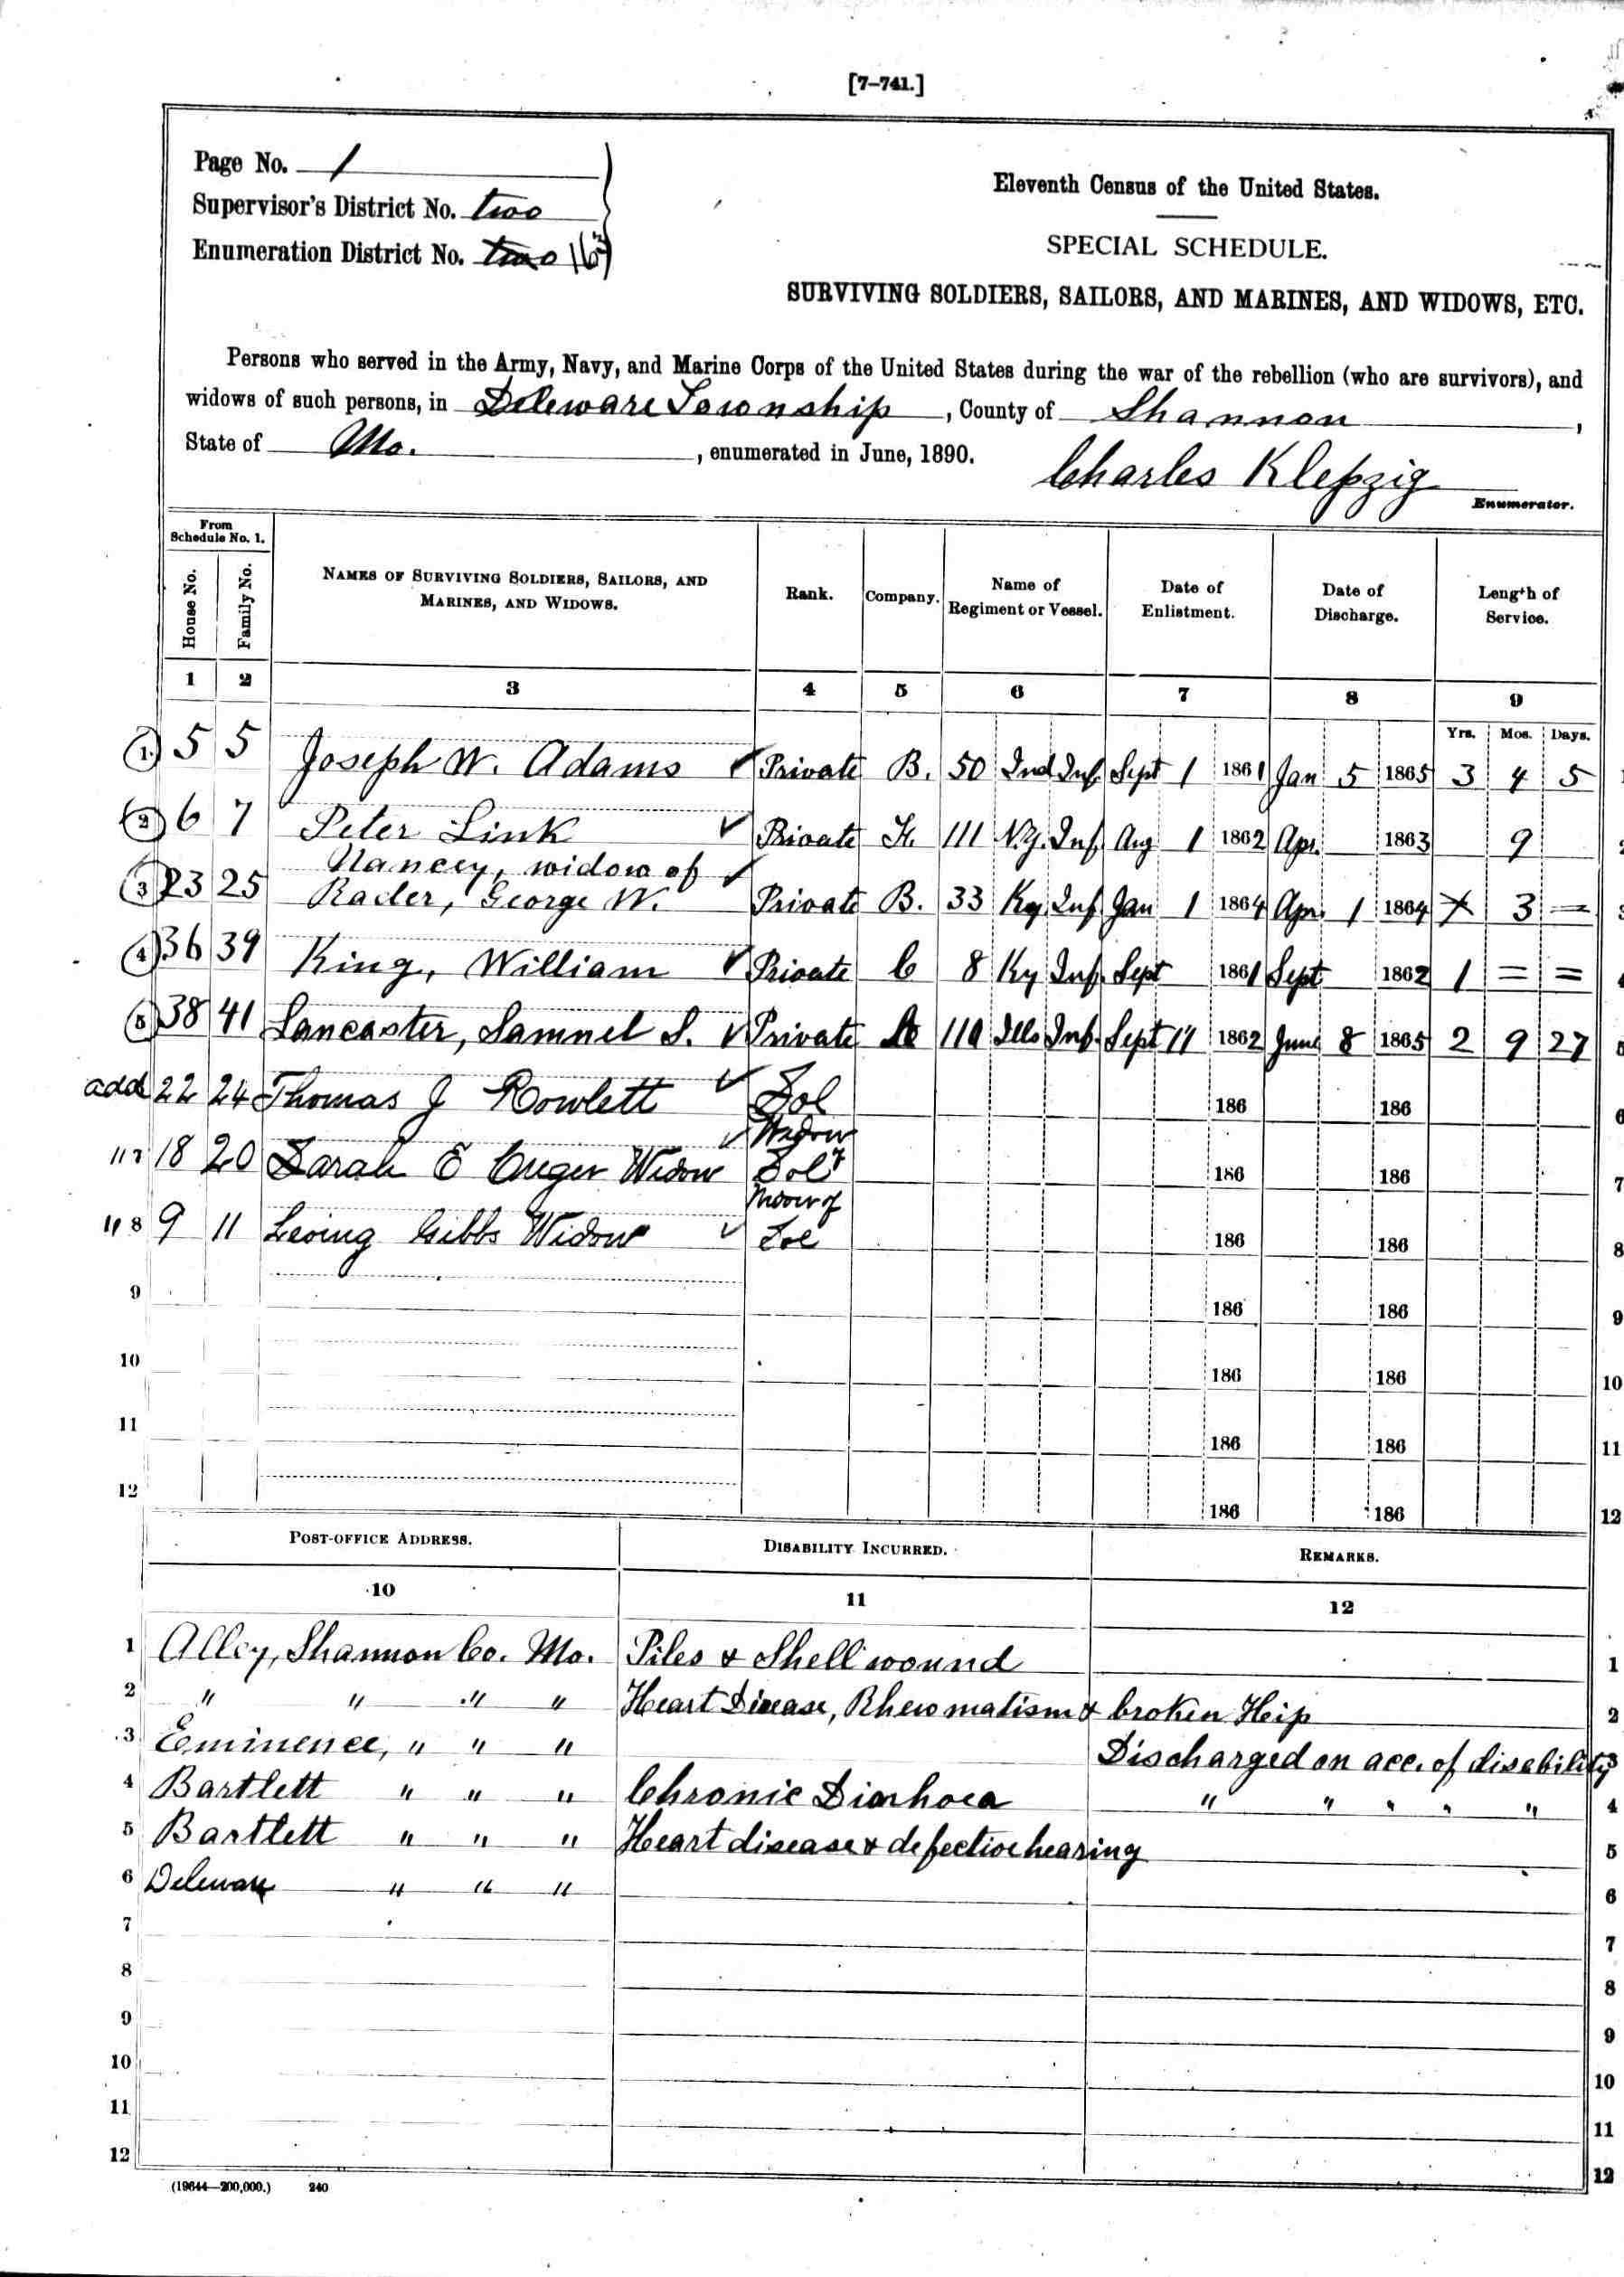 [7-741.]
Page No. 1
Supervisor's District No. two
Enumeration District No. two 167
Eleventh Census of the United States.
SPECIAL SCHEDULE.
SURVIVING SOLDIERS, SAILORS, AND MARINES, AND WIDOWS, ETC.
Persons who served in the Army, Navy, and Marine Corps of the United States during the war of the rebellion (who are survivors), and
widows of such persons, in Deleware Township, County of Shannon,
State of Mo., enumerated in June, 1890.
Charles Klepzig
Enumerator.
From Schedule No. 1.
House No. Family No. NAMES OF SURVIVING SOLDIERS, SAILORS, AND MARINES, AND WIDOWS. Rank. Company. Name of Regiment or Vessel. Date of Enlistment. Date of Discharge. Length of Service.
1 2 3 4 5 6 7 8 9
Yrs. Mos. Days.
1 5 5 Joseph W. Adams Private B. 50 Ind Inf Sept 1 1861 Jan 5 1865 3 4 5 1
2 6 7 Peter Link Private H. 111 N.Y. Inf Aug 1 1862 Apr. 1863 9 2
Nancey, widow of
3 23 25 Rader, George W. Private B. 33 Ky Inf Jan 1 1864 Apr 1 1864 3 = 3
4 36 39 King, William Private C 8 Ky Inf. Sept 1861 Sept 1862 1 = = 4
5 38 41 Lancaster, Samuel S. Private 110 Ills Inf. Sept 11 1862 June 8 1865 2 9 27 5
add 22 24 Thomas J Rowlett Sol 186 186 6
Widow
18 20 Sarah E Widow Sol 186 186 7
Widow of
" 8 9 11 Gibbs Widow Sol 186 186 8
9 186 186 9
10 186 186 10
11 186 186 11
12 186 186 12
POST-OFFICE ADDRESS. DISABILITY INCURRED. REMARKS.
10 11 12
1 Alley, Shannon Co. Mo. Piles & Shell wound 1
2 " " " " Heart Disease, Rhewmatism & broken Heip 2
3 Eminence, " " " Discharged on acc. of disability 3
4 Bartlett " " " Chronic Diarhoea " " " " " 4
5 Bartlett " " " Heart disease & defective hearing 5
6 Deleware " " " 6
7 7
8 8
9 9
10 10
11 11
12 12
(19644—200,000.) 240